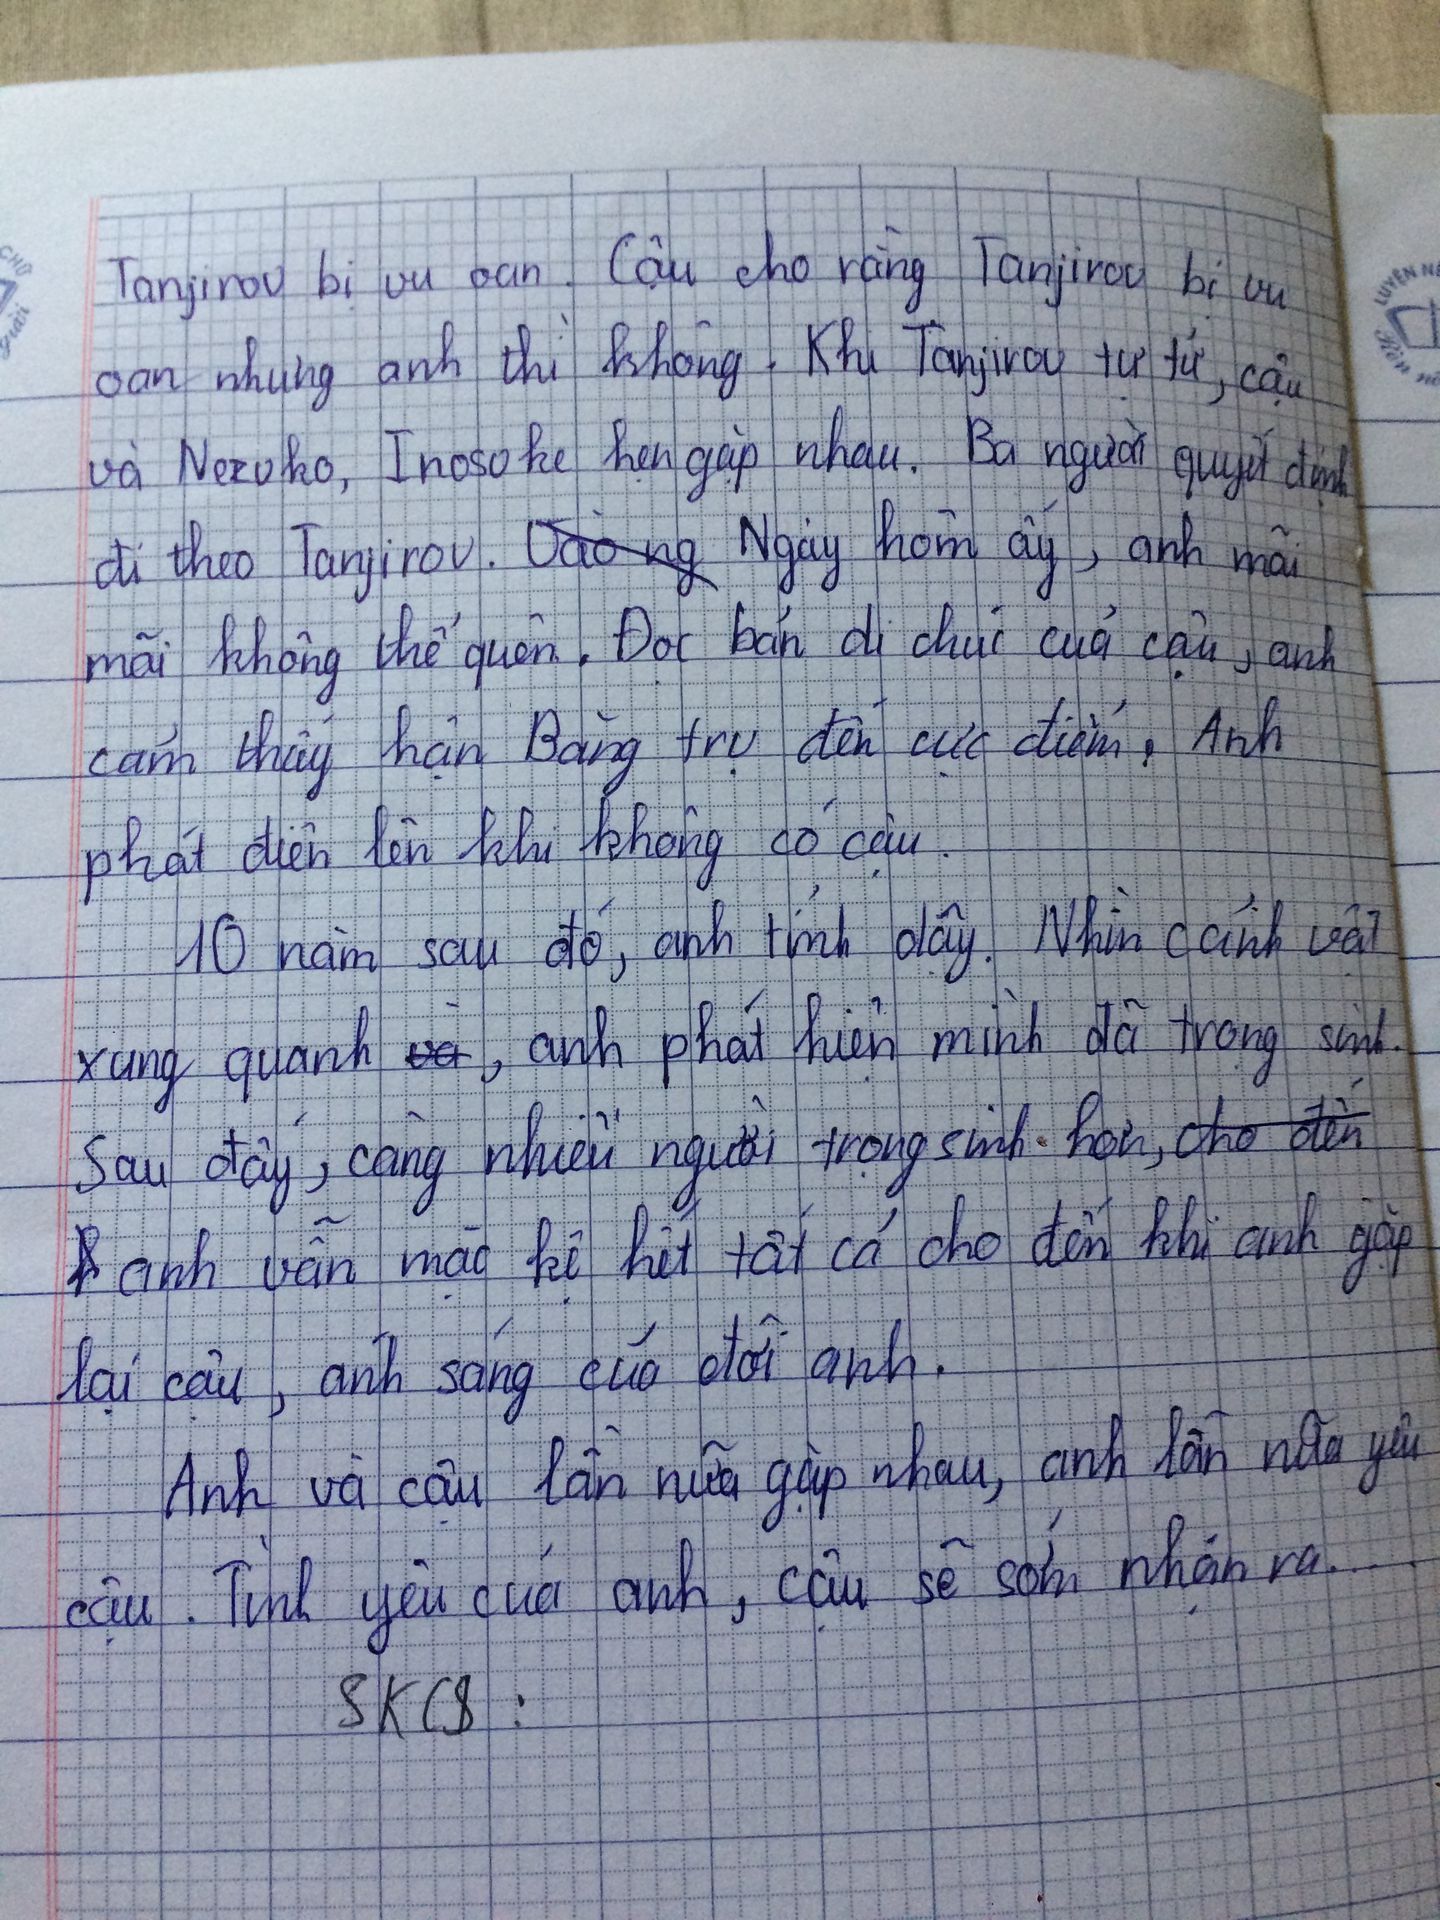 Tanjirou bị vu oan. Cậu cho rằng Tanjirou bị vu
oan nhưng anh thì không. Khi Tanjirou tự tử, cậu
và Nezuko, Inosuke hẹn gặp nhau. Ba người quyết định
đi theo Tanjirou. Vào ng Ngày hôm ấy, anh mãi
mãi không thể quên. Đọc bản di chúc của cậu, anh
cảm thấy hận Băng trụ đến cực điểm. Anh
phát điên lên khi không có cậu.
10 năm sau đó, anh tỉnh dậy. Nhìn cảnh vật
xung quanh và, anh phát hiện mình đã trọng sinh.
Sau đấy, càng nhiều người trọng sinh hơn, cho đến
anh vẫn mặc kệ hết tất cả cho đến khi anh gặp
lại cậu, ánh sáng của đời anh.
Anh và cậu lần nữa gặp nhau, anh lần nữa yêu
cậu. Tình yêu của anh, cậu sẽ sớm nhận ra....
LUYỆN NÉ